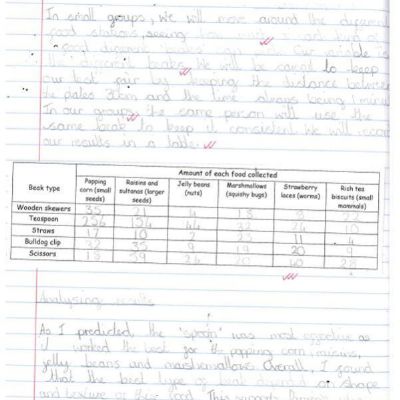 In small groups, we will move around the different
food stations, seeing how much each type of
food different beaks
the different beaks. We will be careful to keep
our test fair by keeping the distance between
the plates 30cm and the time always being 1 minute
In our groups, the same person will use the
same beak to keep it consistent. We will record
our results in a table.
Beak type
Amount of each food collected
Popping corn (small seeds) Raisins and sultanas (larger seeds) Jelly beans (nuts) Marshmallows (squishy bugs) Strawberry laces (worms) Rich tea biscuits (small mammals)
Wooden skewers 35 21 4 9
Teaspoon 256 134 44 32 10
Straws 17 2 11 4
Bulldog clip 32 35 9 19 20 9
Scissors 39 20 40 28
Analysing results
As I predicted the "spoon" was most effective as
it worked the best for the popping corn, raisins,
jelly beans and marshmallows. Overall, I found
that the best type of beak depended on shape
and texture of the food. This supports